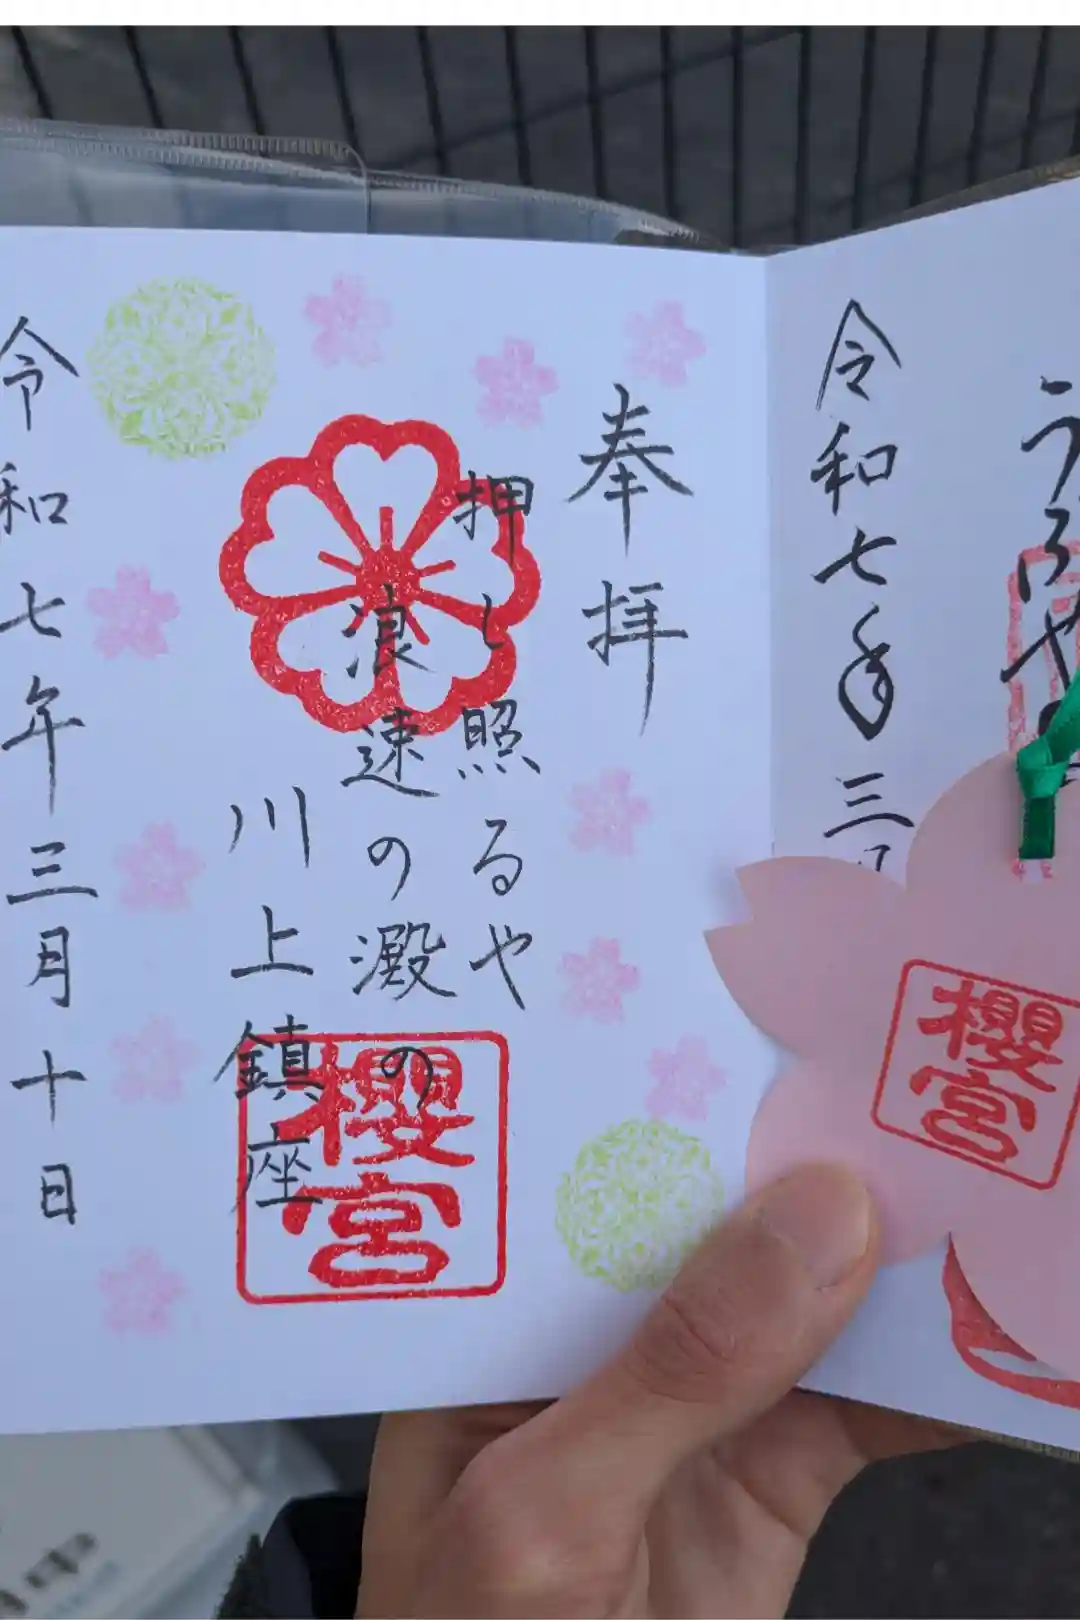 奉拝
押し照るや
浪速の澱の
川上鎮座
櫻宮
令和七年三月十日
うろや
令和七年三
櫻宮